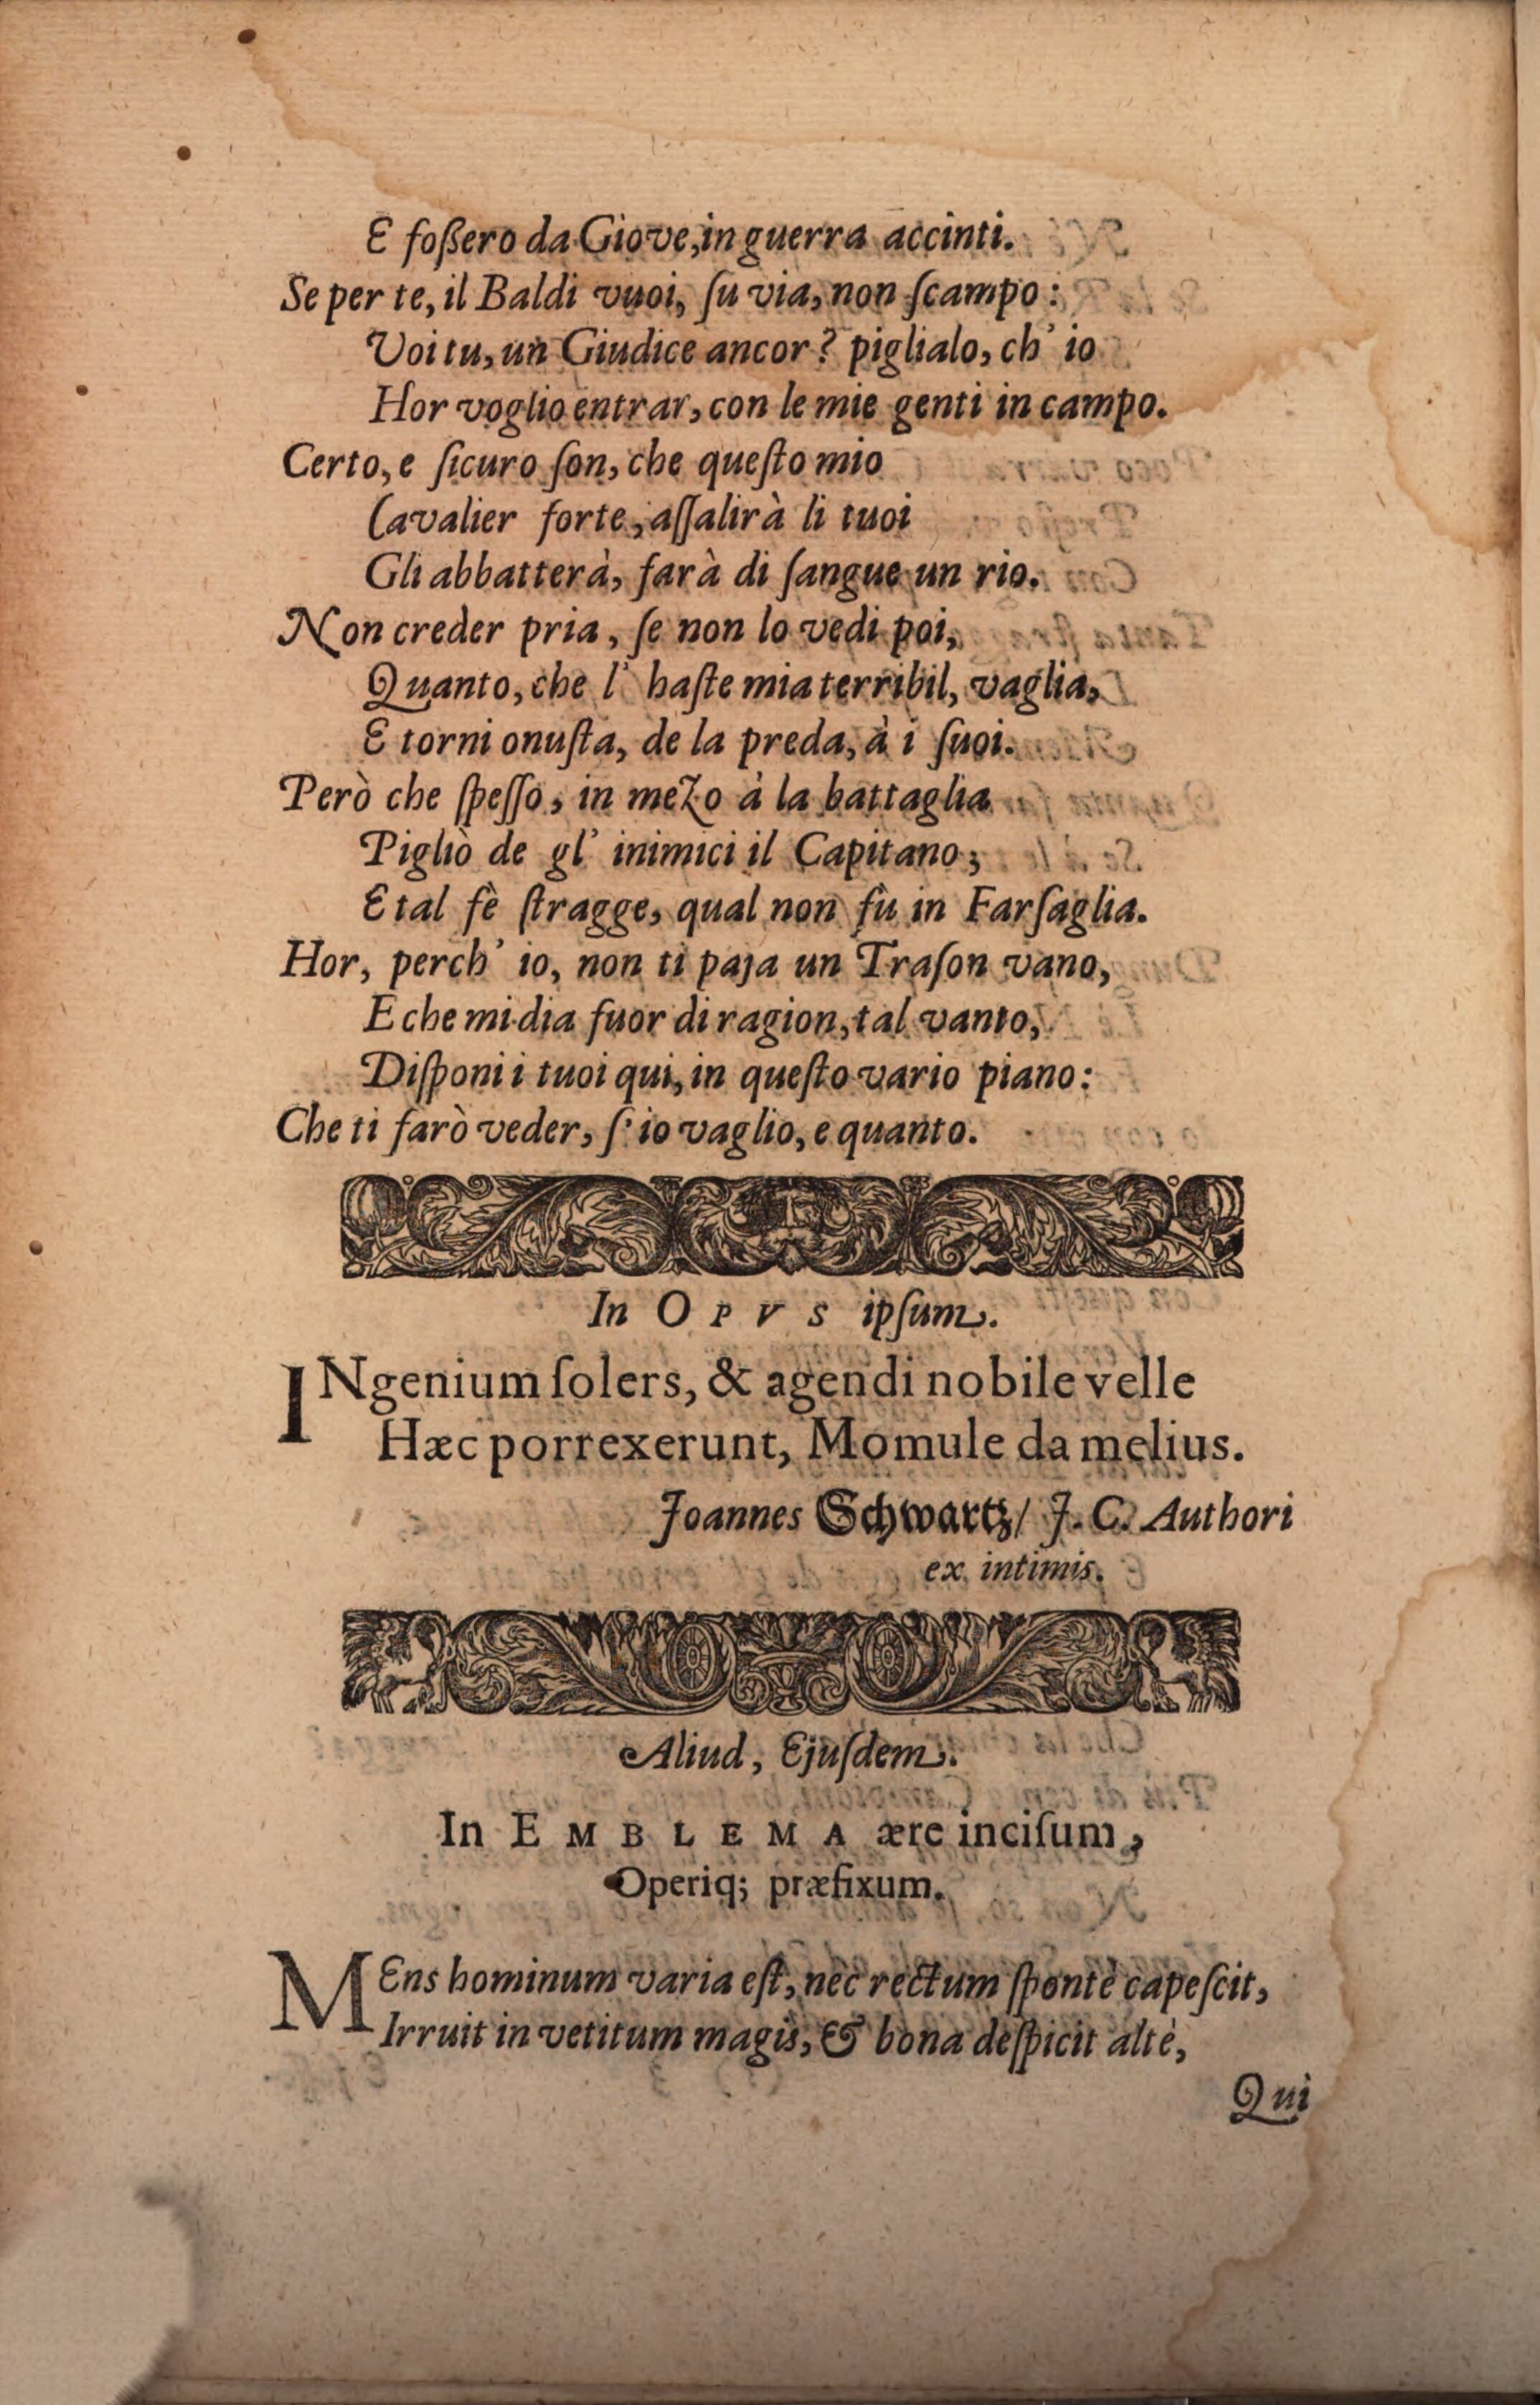 E foßero da Giove, in guerra accinti.
Se per te, il Baldi vuoi, ſu via, non ſcampo:
Voi tu, un Giudice ancor? piglialo, ch' io
Hor voglio entrar, con le mie genti in campo.
Certo, e ſicuro ſon, che queſto mio
Cavalier forte, aſſalirà li tuoi
Gli abbatterà, farà di ſangue un rio.
Non creder pria, ſe non lo vedi poi,
Quanto, che l' haſte mia terribil, vaglia,
E torni onuſta, de la preda, à i ſuoi.
Però che ſpeſſo, in mezo à la battaglia
Pigliò de gl' inimici il Capitano;
E tal fè ſtragge, qual non fù in Farſaglia.
Hor, perch' io, non ti paja un Traſon vano,
E che mi dia fuor di ragion, tal vanto,
Diſponi i tuoi qui, in queſto vario piano:
Che ti farò veder, ſ' io vaglio, e quanto.
In OPVS ipſum.
INgenium ſolers, & agendi nobile velle
Hæc porrexerunt, Momule da melius.
Joannes Schwartz/ J. C. Authori
ex intimis.
Aliud, Ejuſdem.
In EMBLEMA ære inciſum,
Operiq; præfixum.
MEns hominum varia eſt, nec rectum ſpontè capeſcit,
Irruit in vetitum magis, & bona deſpicit altè,
Qui